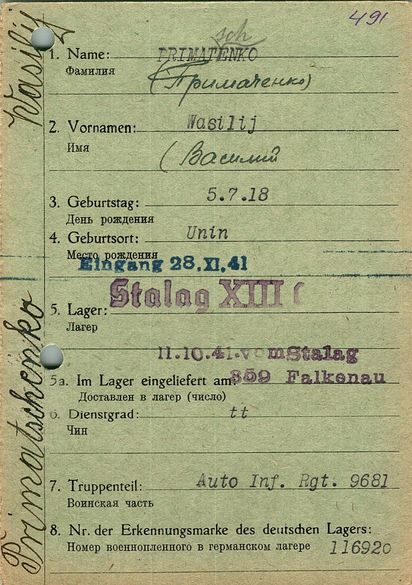 491
sch
1. Name: PRIMATENKO
Фамилия (Примаченко)
2. Vornamen: Wasilij
Имя (Василий
3. Geburtstag: 5.7.18
День рождения
4. Geburtsort: Unin
Место рождения
Eingang 28.XI.41
Stalag XIII C
5. Lager:
Лагер
11.10.41. vom Stalag
5a. Im Lager eingeliefert am: 359 Falkenau
Доставлен в лагер (число)
6. Dienstgrad: tt
Чин
7. Truppenteil: Auto Inf. Rgt. 9681
Воинская часть
8. Nr. der Erkennungsmarke des deutschen Lagers:
Номер военнопленного в германском лагере 116920
Primatschenko Wasilij